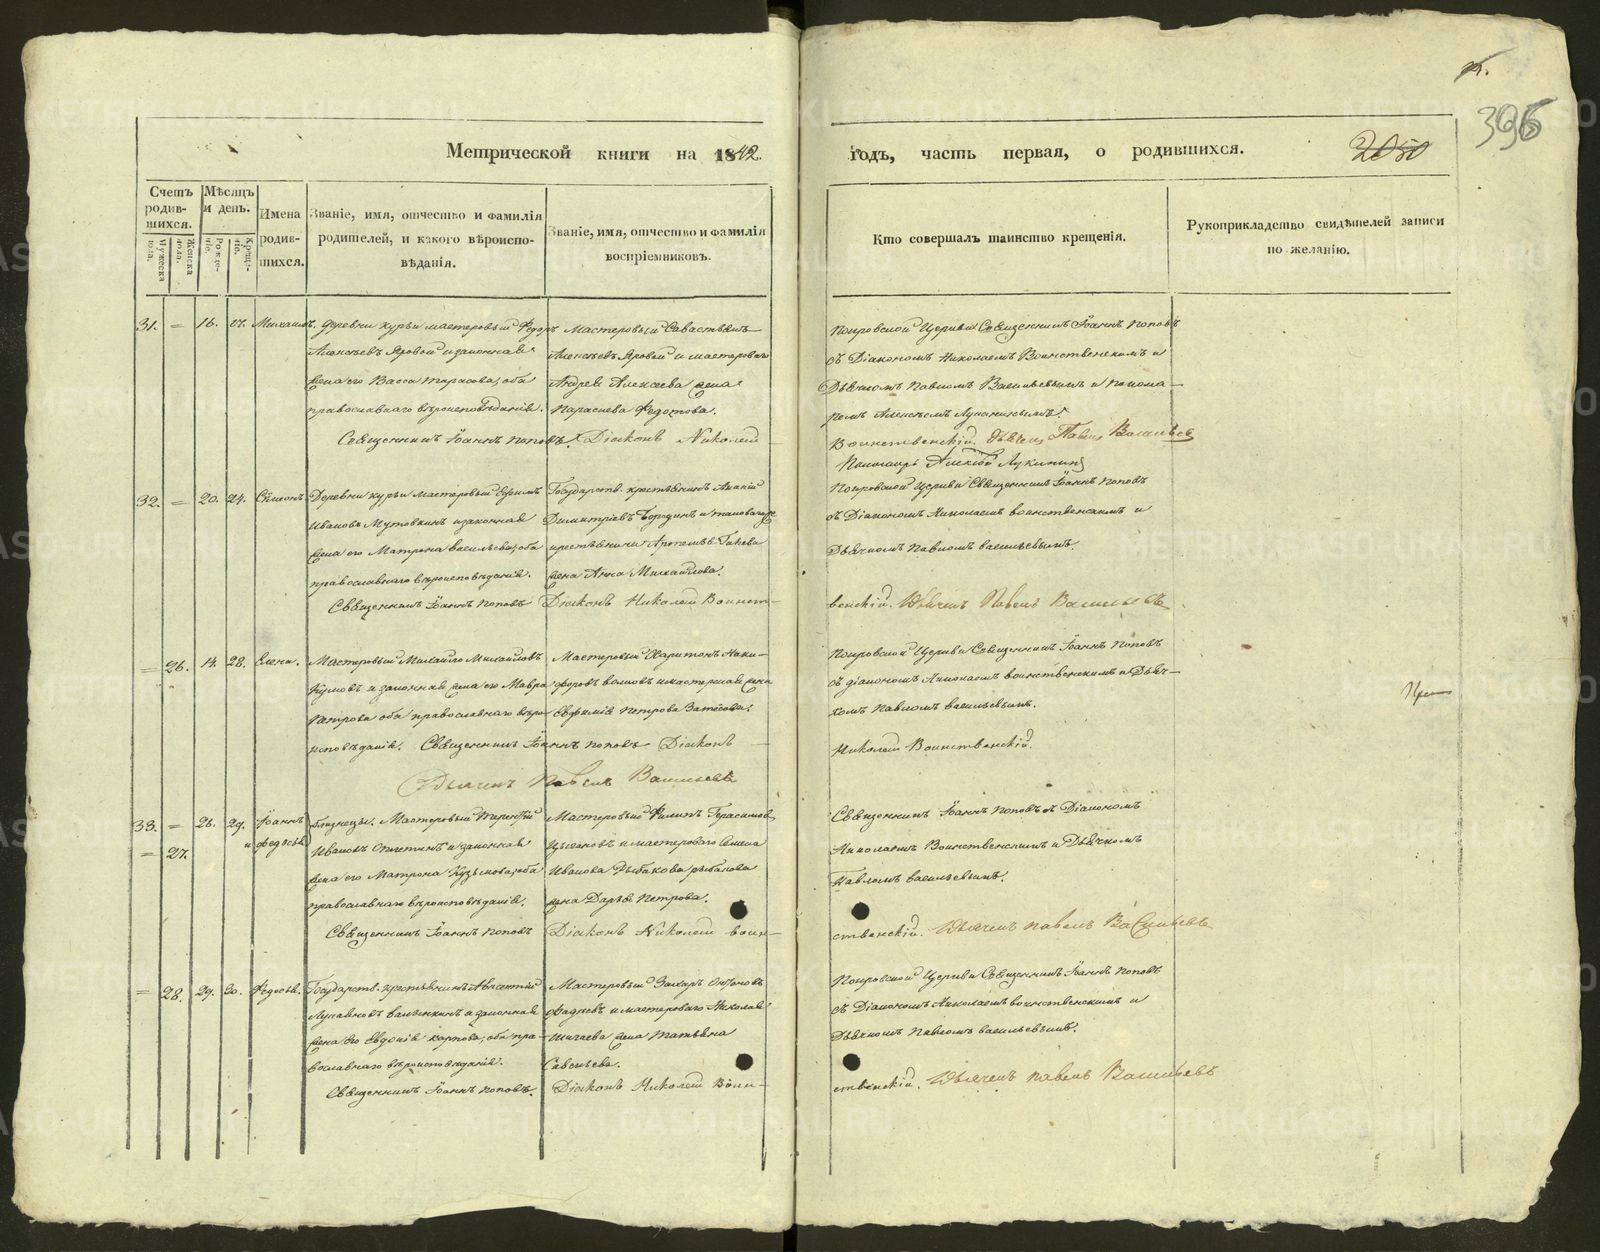 Метрической книги на 1842.
годъ, часть первая, о родившихся.
2050
396
Счетъ родив-шихся.
Мѣсяцъ и день.
Имена родив-шихся.
Званіе, имя, отчество и фамилія родителей, и какого вѣроиспо-вѣданія.
Званіе, имя, отчество и фамилія воспріемниковъ.
Кто совершалъ таинство крещенія.
Рукоприкладство свидѣтелей записи по желанію.
Мужеска пола.
Женска пола.
Рожде-ніе.
Креще-ніе.
31. — 16. 17. Михаилъ.
деревни курьи мастеровый Ѳедоръ
Алексѣевъ Яровой и законная
жена его Васса Тарасова, оба
православнаго вѣроисповѣданія.
Мастеровый Савастьянъ
Алексѣевъ Яровой и мастероваго
Андрея Алексеева жена
Параскева Ѳедотова.
Священникъ Іоаннъ Поповъ. Діаконъ Николай
Покровской Церкви Священникъ Іоаннъ Поповъ
съ Діакономъ Николаемъ Воинственскимъ и
Дьячкомъ Павломъ Васильевымъ и понома-
ремъ Алексѣемъ Лукиныхымъ.
Воинственскій. Дьячекъ Павелъ Васильевъ
Пономарь Алексѣй Лукинин
32. — 20. 24. Сѵмеонъ
Деревни курьи мастеровый Ефимъ
Ивановъ Мутовкинъ и законная
жена его Матрона васильева, оба
православнаго вѣроисповѣданія.
Государств. крестьянинъ Ананій
Димитріевъ Бородинъ и таковагоже
крестьянина Артемья Гилева
жена Анна Михайлова.
Священникъ Іоаннъ Поповъ Діаконъ Николай Воинст-
Покровской Церкви Священникъ Іоаннъ Поповъ
съ Діакономъ Николаемъ воинственскимъ и
Дьячкомъ Павломъ васильевымъ.
венскій. Дьячекъ Павелъ Васильевъ
— 26. 14. 28. Елена.
Мастеровый Михайло Михайловъ
Кумовъ и законная жена его Мавра
Петрова оба православнаго вѣро-
исповѣданія.
Мастеровый Харитонъ Ники-
форовъ волковъ и мастерская жена
Евфимія Петрова Затѣева.
Священникъ Іоаннъ поповъ Діаконъ
Дьячекъ Павелъ Васильевъ
Покровской Церкви Священникъ Іоаннъ Поповъ
съ діакономъ Николаемъ воинственскимъ и Дьяч-
комъ Павломъ васильевымъ.
Николай Воинственскій.
33. — 26. 29. Іоаннъ
— 27. и Ѳедосья
близнецы. Мастеровый Терентій
Ивановъ Опетинъ и законная
жена его Матрона Кузьмова, оба
православнаго вѣроисповѣданія.
Мастеровый Филипъ Герасимовъ
Цыгановъ и мастероваго Семена
Иванова Рыбакова рыбакова
жена Дарья Петрова.
Священникъ Іоаннъ поповъ Діаконъ Николай воин-
Священникъ Іоаннъ Поповъ съ Діакономъ
Николаемъ Воинственскимъ и Дьячкомъ
Павломъ васильевымъ.
ственскій. Дьячекъ павелъ Васильевъ
— 28. 29. 30. Ѳедосья.
Государств. крестьянинъ Авксентій
и законная
жена его Евдокія карпова, оба пра-
вославнаго вѣроисповѣданія.
Мастеровый Захаръ
Фадѣевъ и мастероваго Николая
Шигаева жена Татьяна
Савельева.
Священникъ Іоаннъ поповъ. Діаконъ Николай Воин-
Покровской Церкви Священникъ Іоаннъ Поповъ
съ Діакономъ Николаемъ воинственскимъ и
Дьячкомъ Павломъ васильевымъ.
ственскій. Дьячекъ павелъ Васильевъ
METRIKI.GASO-URAL.RU